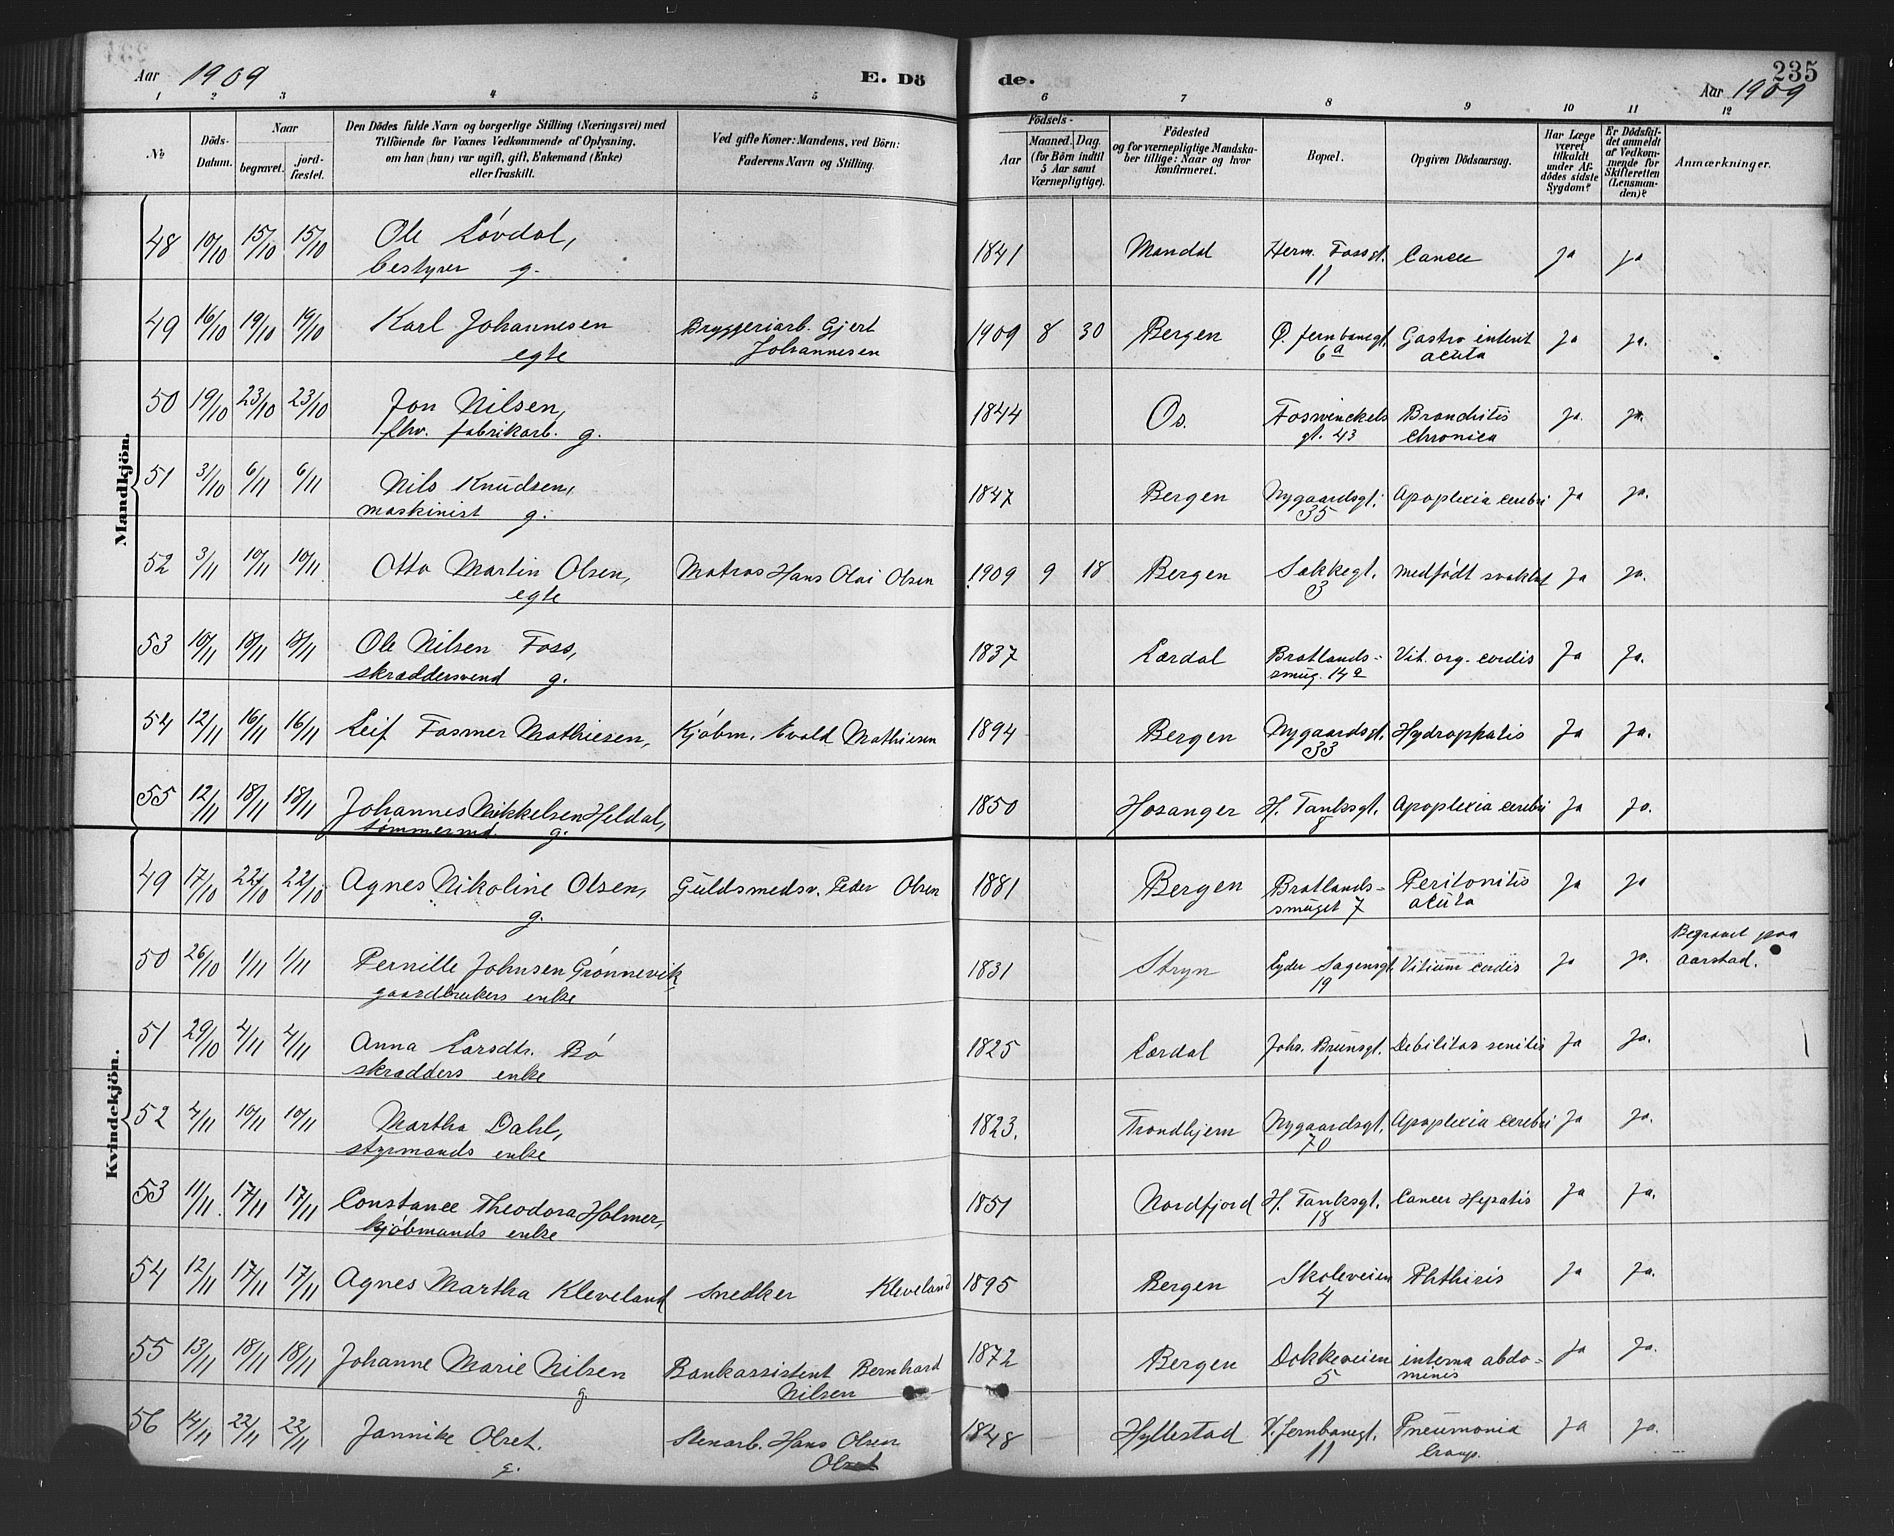 Aar 1909
E. Dö
de.
235
Aar 1909
1 2 3 4 5 6 7 8 9 10 11 12
No
Döds-Datum.
Naar
begravet.
jord-fæstet.
Den Dödes fulde Navn og borgerlige Stilling (Næringsvei) med
Tilföiende for Voxnes Vedkommende af Oplysning,
om han (hun) var ugift, gift, Enkemand (Enke)
eller fraskilt.
Ved gifte Koner: Mandens, ved Börn:
Faderens Navn og Stilling.
Födsels-
Aar
Maaned. Dag.
(for Börn indtil
5 Aar samt
Værnepligtige).
Födested
og for værnepligtige Mandska-
ber tillige: Naar og hvor
konfirmeret.
Bopæl.
Opgiven Dödsaarsag.
Har Læge
været
tilkaldt
under Af-
dödes sidste
Sygdom?
Er Dödsfal-
det anmeldt
af Vedkom-
mende for
Skifteretten
(Lensman-
den)?
Anmærkninger.
Mandkjön.
48 10/10 15/10 15/10 Ole Lóvdal, 1841 Mandal Herm. Fossgt. Cancer Ja Ja
bestyrer g. 11
49 16/10 19/10 19/10 Karl Johannesen Bryggeriarb. Gjert 1909 8 30 Bergen Ø. Jernbanegt. Gastro interit Ja Ja.
egte Johannesen 6a acuta
50 19/10 23/10 23/10 Jon Nilsen, 1844 Os. Foswinckels Bronchitis Ja. Ja.
fhv. fabrikarb. g. gt. 43 chronica
51 31/10 6/11 6/11 Nils Knudsen, 1847 Bergen Nygaardsgt. Apoplexia cerebri Ja Ja.
maskinist g. 35
52 3/11 10/11 10/11 Otto Martin Olsen, Matros Hans Olai Olsen 1909 9 18 Bergen Sakkegt. medfödt svakhet Ja Ja.
egte 3
53 10/11 18/11 18/11 Ole Nilsen Foss, 1837 Lærdal Bratlands- Vit. org. cordis Ja Ja.
skræddersvend g. smug. 14a
54 12/11 16/11 16/11 Leif Fasmer Mathiesen, Kjöbm. Evald Mathiesen 1894 Bergen Nygaardsgt. Ja Ja.
33
55 12/11 18/11 18/11 Johannes Mikkelsen Heldal, 1850 Hosanger H. Tanksgt. Apoplexia cerebri Ja Ja.
tömmermd. g. 8
Kvindekjön.
49 17/10 22/10 22/10 Agnes Nikoline Olsen, Guldsmedsv. Peder Olsen 1881 Bergen Bratlands- Peritonitis Ja Ja
g. smuget 7 acuta
50 26/10 1/11 1/11 Pernille Johnsen Grönnevik 1831 Stryn Lyder Sagensgt. Vitium cordis Ja Ja. Begravet paa
gaardbrukers enke 19 Aarstad.
51 29/10 4/11 4/11 Anna Larsdtr. Bö 1825 Lærdal Johs. Brunsgt. Debilitas senilis Ja Ja.
skrædders enke
52 4/11 10/11 10/11 Martha Dahl, 1823. Trondhjem Nygaardsgt. Apoplexia cerebri Ja Ja.
styrmands enke 70
53 11/11 17/11 17/11 Constance Theodora Holmer, 1851 Nordfjord H. Tanksgt. Cancer Hepatis Ja Ja.
kjöbmands enke 18
54 12/11 17/11 17/11 Agnes Martha Kleveland Snedker Kleveland 1895 Bergen Skoleveien Phthisis Ja Ja.
4
55 13/11 18/11 18/11 Johanne Marie Nilsen Bankassistent Bernhard 1872 Bergen Dokkeveien interna abdo- Ja Ja.
g. Nilsen 5 minis
56 14/11 22/11 22/11 Jannike Olset. Stenarb. Hans Olsen 1848 Hyllestad V. Jernbanegt. Pneumonia Ja Ja.
g. Olset 11 Croup.